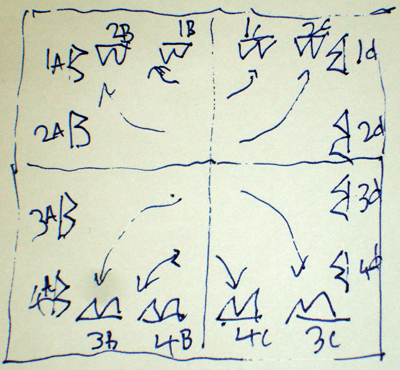 2B 1B 1C 2C
1A 1d
2A 2d
3A 3d
4A 4d
3B 4B 4C 3C